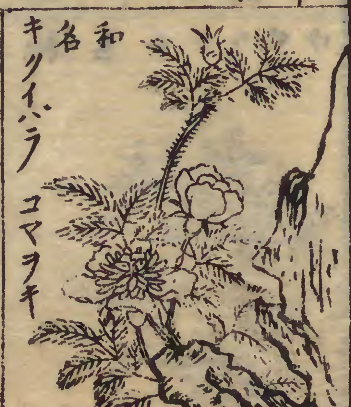 和名
キクイバラ コマヲキ